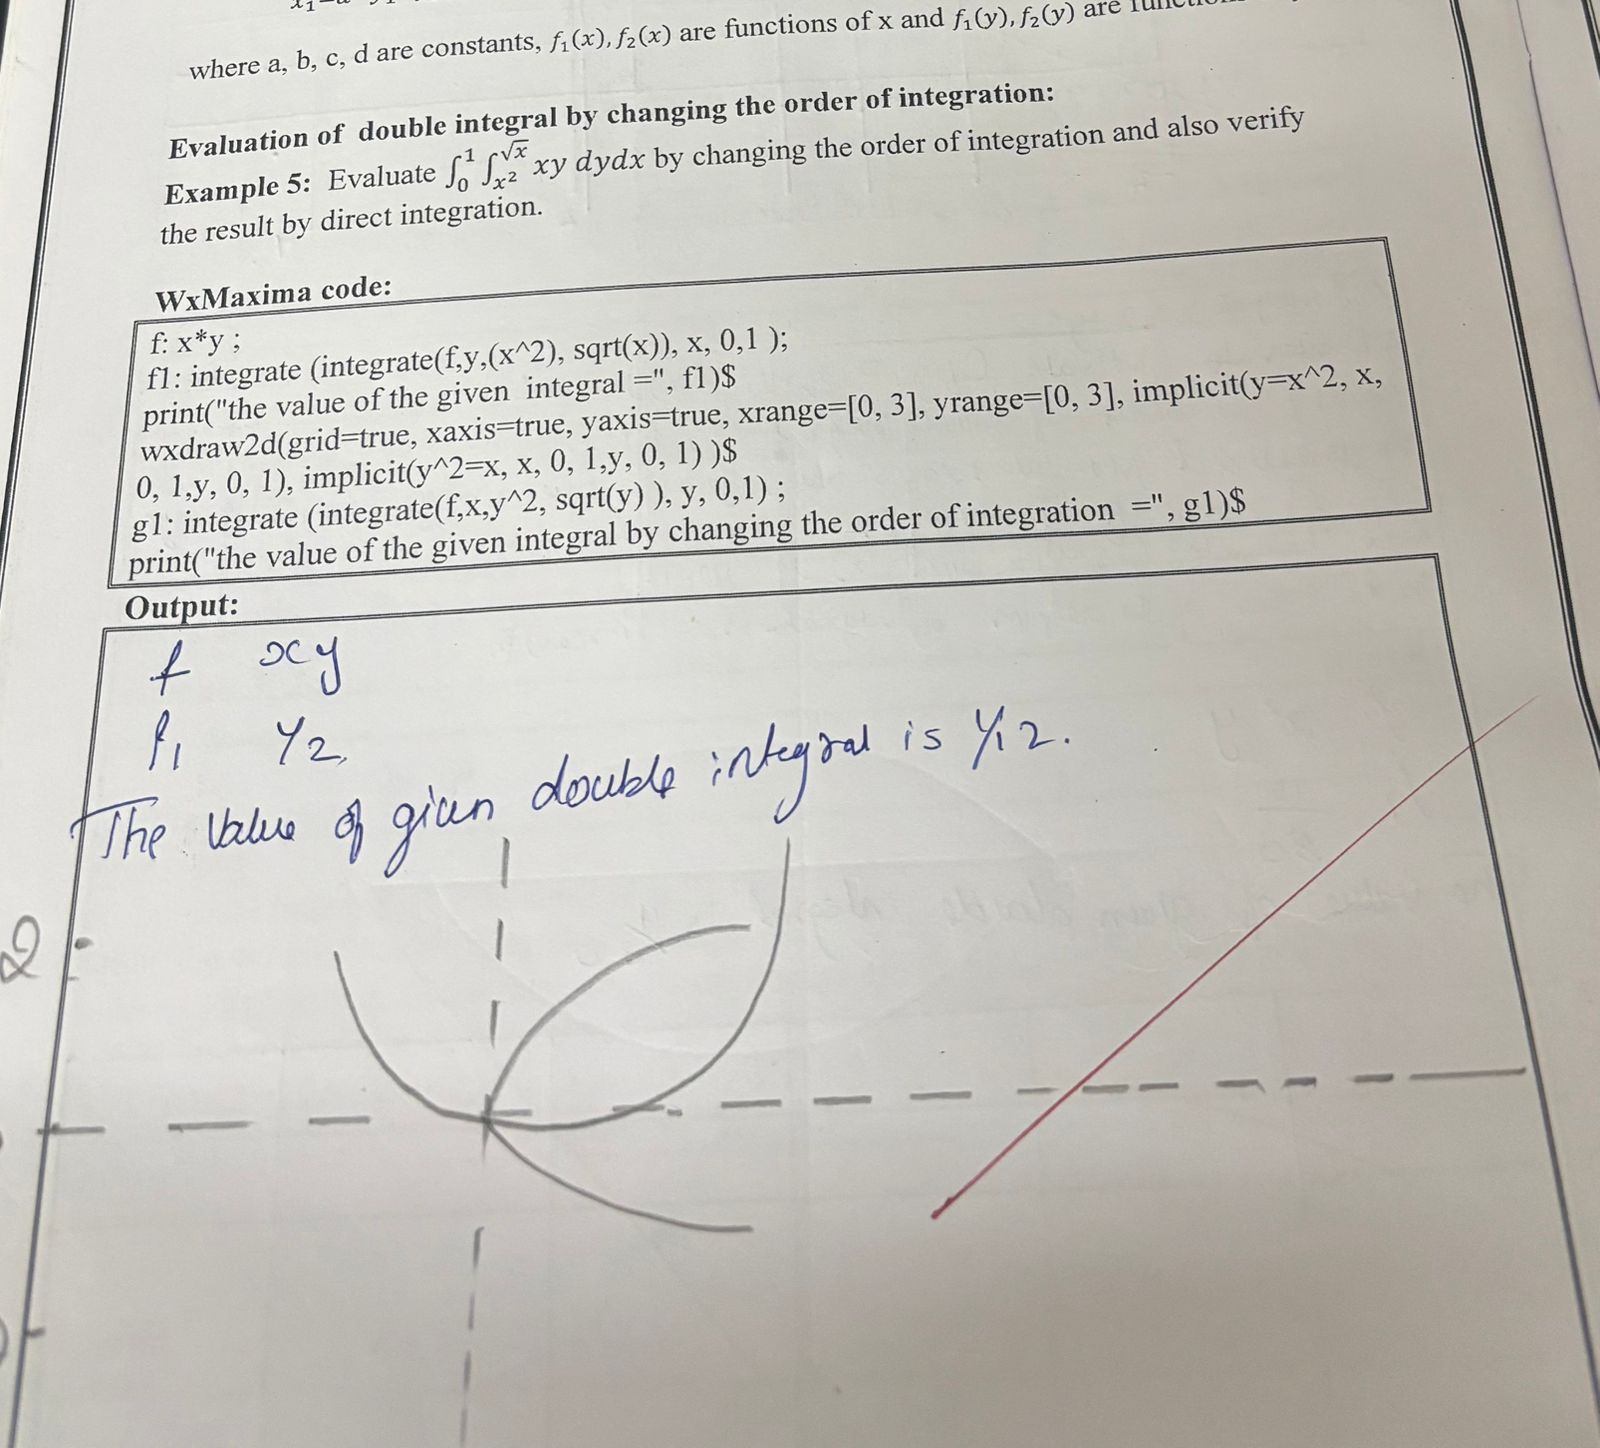 where a, b, c, d are constants, f₁(x), f₂(x) are functions of x and f₁(y), f₂(y) are
Evaluation of double integral by changing the order of integration:
Example 5: Evaluate ∫₀¹ ∫ₓ₂^√x xy dydx by changing the order of integration and also verify
the result by direct integration.
WxMaxima code:
f: x*y ;
f1: integrate (integrate(f,y,(x^2), sqrt(x)), x, 0,1 );
print("the value of the given integral =", f1)$
wxdraw2d(grid=true, xaxis=true, yaxis=true, xrange=[0, 3], yrange=[0, 3], implicit(y=x^2, x,
0, 1,y, 0, 1), implicit(y^2=x, x, 0, 1,y, 0, 1) )$
g1: integrate (integrate(f,x,y^2, sqrt(y) ), y, 0,1) ;
print("the value of the given integral by changing the order of integration =", g1)$
Output:
f xy
f₁ 1/2
The Value of given double integral is 1/12.
2